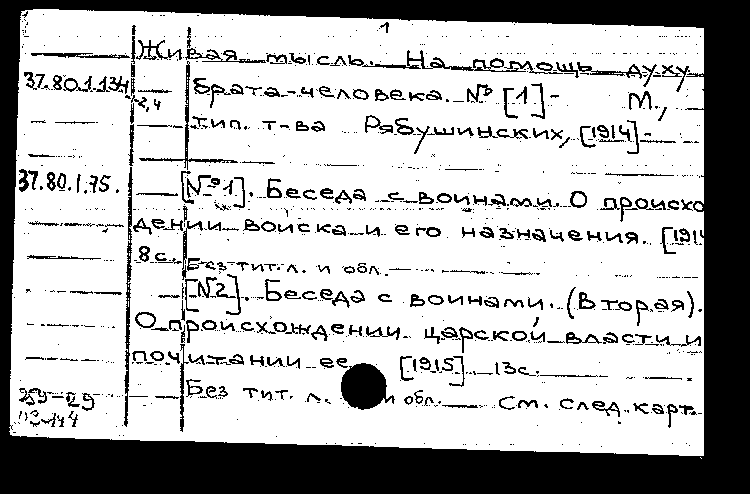 1
Живая мысль. На помощь духу
37.80.1.134 брата-человека. № [1]- М.,
-2,4
тип. т-ва Рябушинских, [1914]-
37.80.1.75. [№1]. Беседа с воинами. О происхо
дении войска и его назначения. [1914
8с. Без тит. л. и обл.
[№2]. Беседа с воинами. (Вторая).
О происхождении царской власти и
почитании ее [1915] 13с.
Без тит. л. и обл. См. след. карт.
259-29